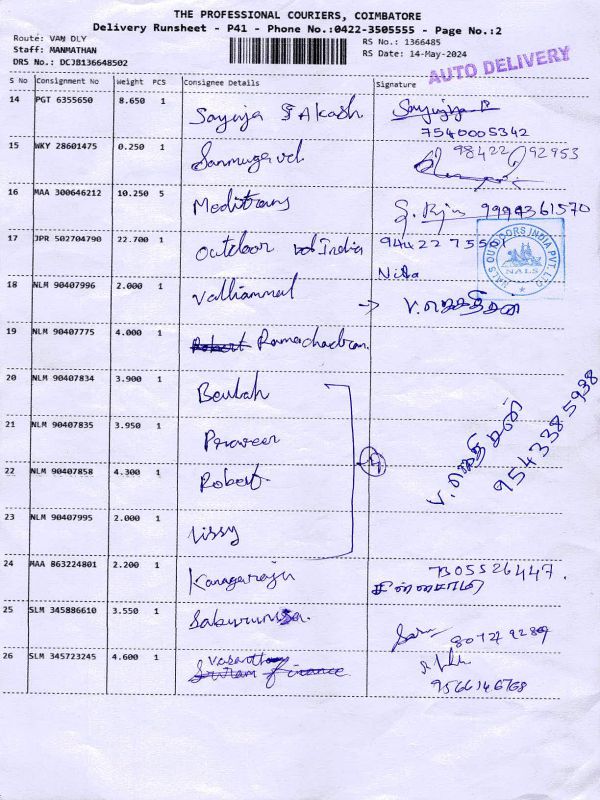 THE PROFESSIONAL COURIERS, COIMBATORE
Delivery Runsheet - P41 - Phone No.:0422-3505555 - Page No.:2
Route: VAN DLY
RS No.: 1366485
Staff: MANMATHAN
RS Date: 14-May-2024
DRS No.: DCJB136648502
AUTO DELIVERY
S No Consignment No Weight PCS Consignee Details Signature
14 PGT 6355650 8.650 1 Akash
7540005342
15 WKY 28601475 0.250 1 Sanmugavel 98422 92953
16 MAA 300646212 10.250 5 Meditrans 9994361570
17 JPR 502704790 22.700 1 Outdoor India
NALS OUTDOORS INDIA PVT. LTD
NALS
18 NLM 90407996 2.000 1 Valliammal → V.
19 NLM 90407775 4.000 1 Robert Ramachandran.
20 NLM 90407834 3.900 1 Beulah
21 NLM 90407835 3.950 1 Praveen
4
V.
9543385938
22 NLM 90407858 4.300 1 Robert
23 NLM 90407995 2.000 1 Lissy
24 MAA 863224801 2.200 1 Kanagaraju
சின்னசாமி
25 SLM 345886610 3.550 1
26 SLM 345723245 4.600 1 Vasantha
Finance
9566146768